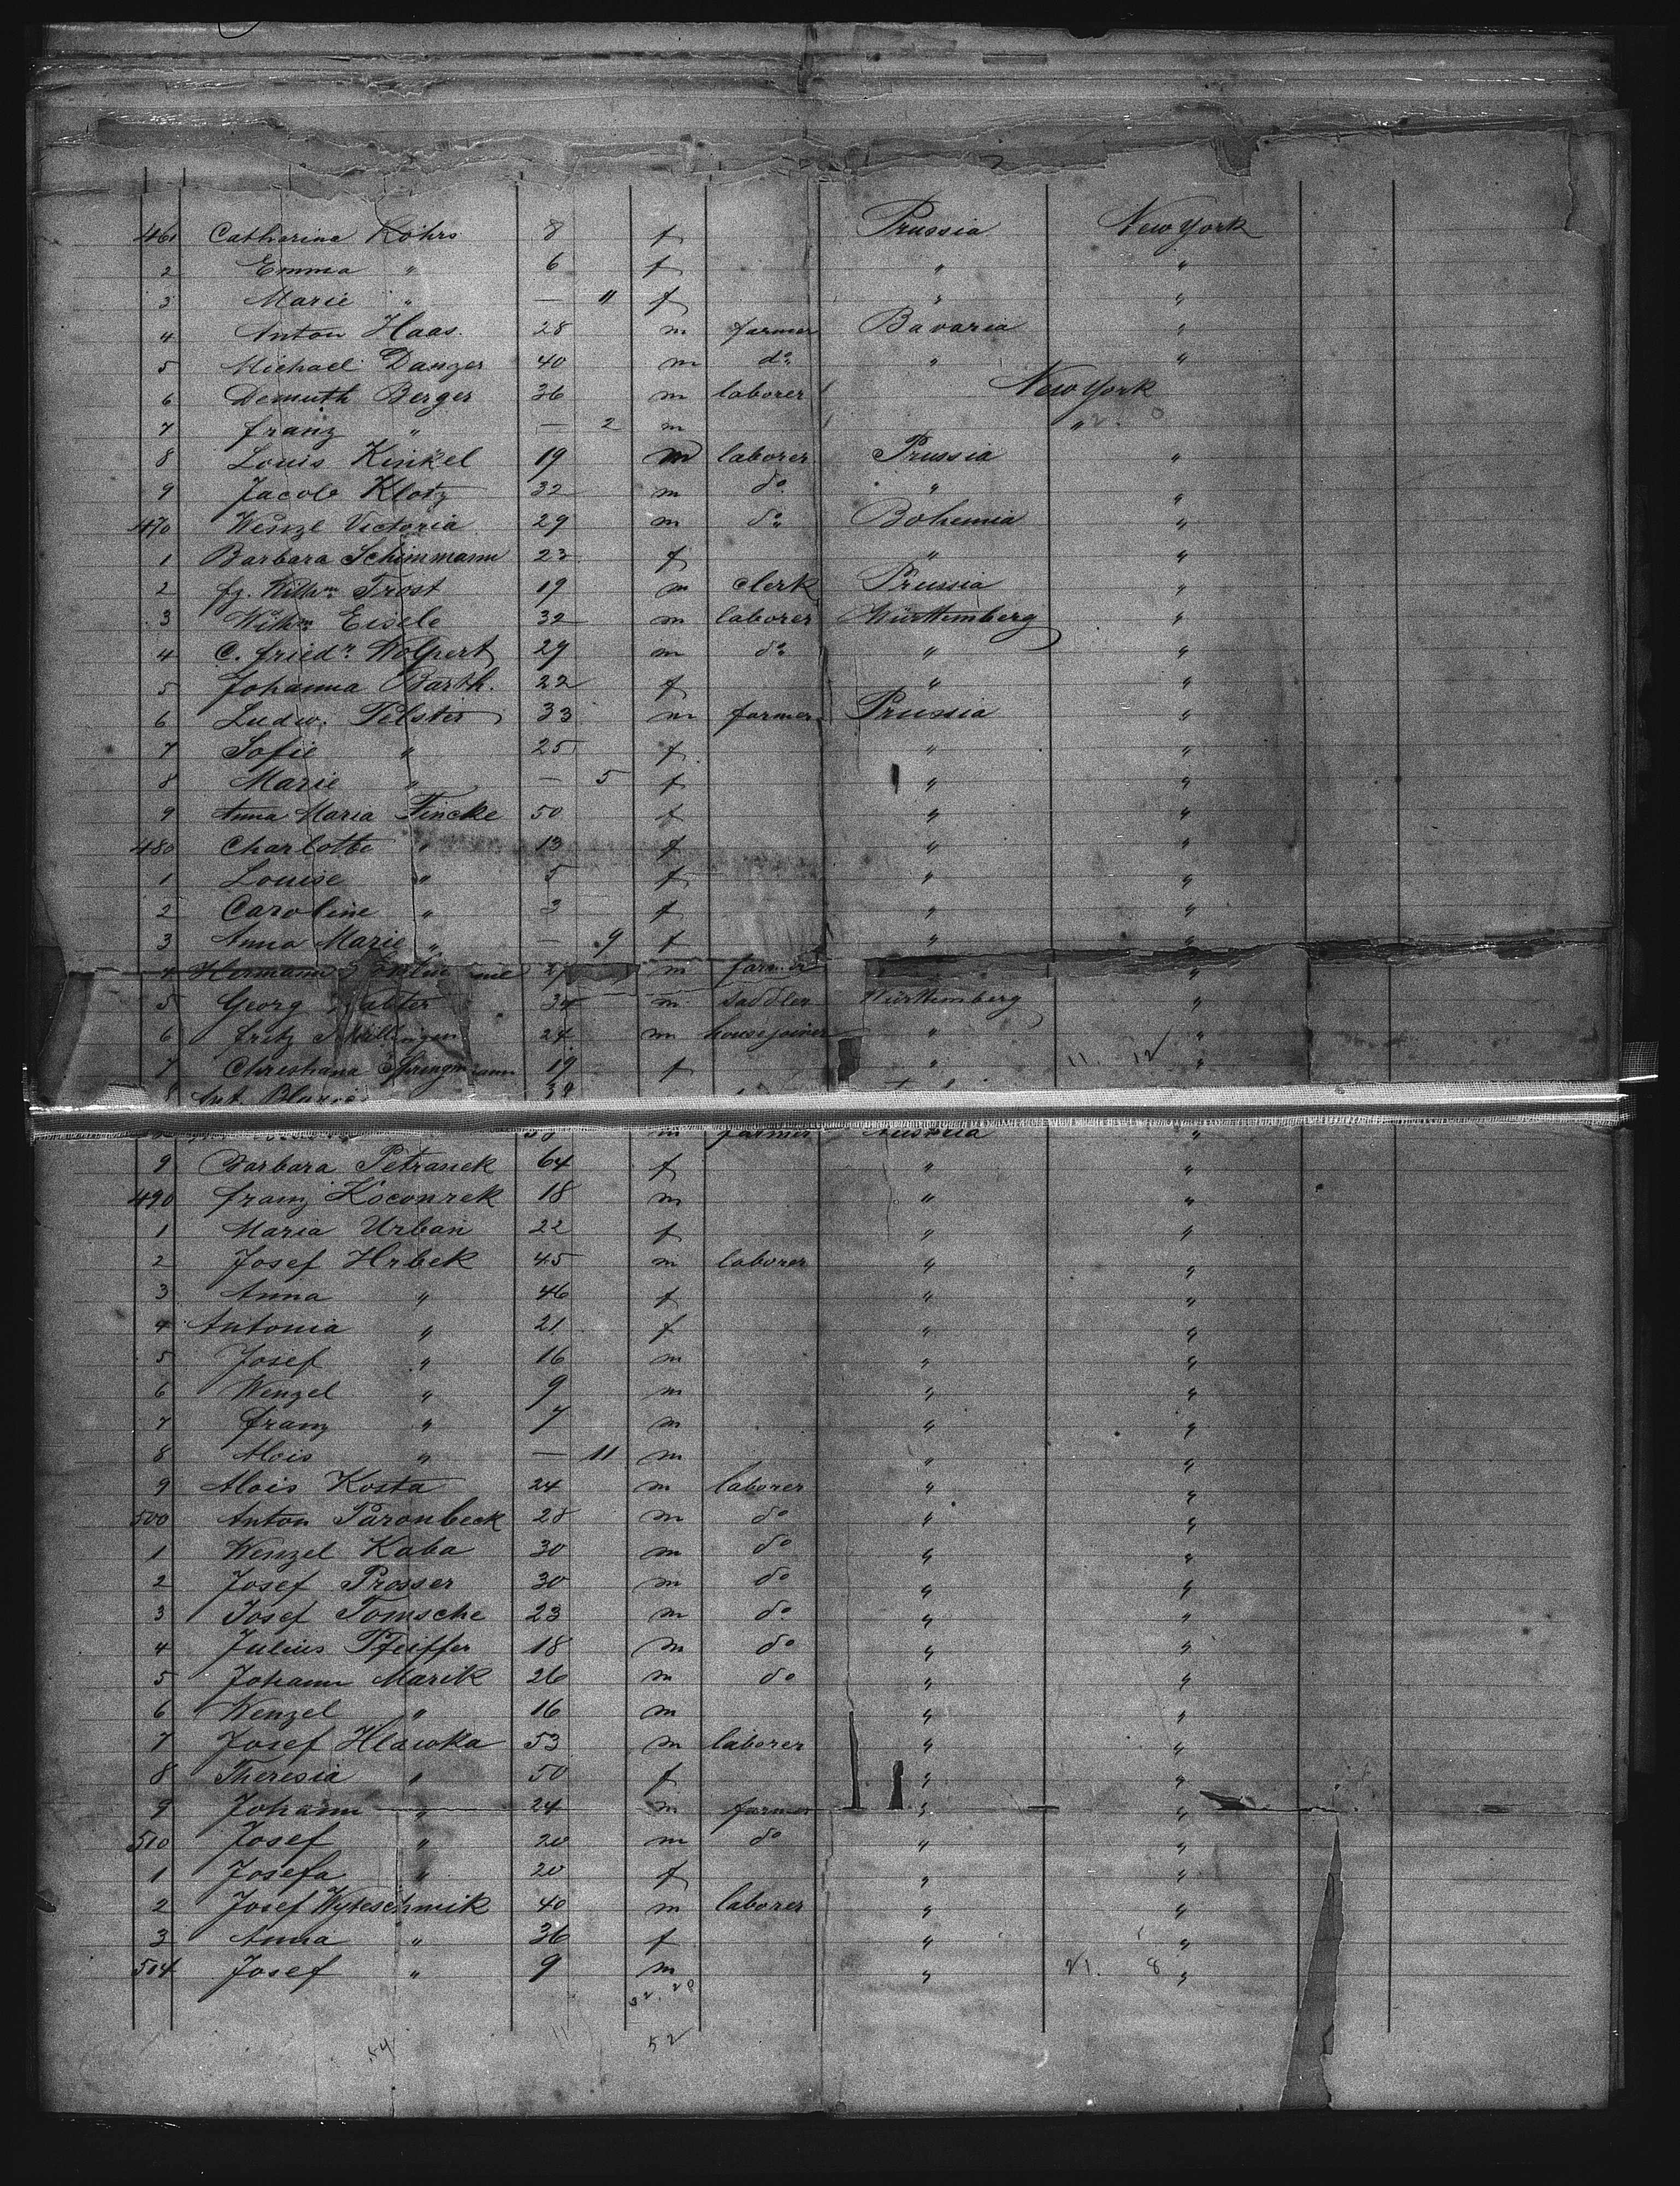 461 Catharina Röhrs 8 f Prussia New York
2 Emma " 6 f " "
3 Marie " — 11 f " "
4 Anton Haas 28 m farmer Bavaria "
5 Michael Danger 40 m do " "
6 Demuth Berger 36 m laborer New York
7 Franz " — 2 m "
8 Louis Kinkel 19 m laborer Prussia "
9 Jacob Klotz 32 m do " "
470 Wenzl Victoria 29 m do Bohemia "
1 Barbara Schimmann 23 f " "
2 Fz. Wilhm Trost 19 m clerk Prussia "
3 Wilhm Eisele 32 m laborer Württemberg "
4 C. Friedr Wolpert 29 m do " "
5 Johanna Barth. 22 f " "
6 Ludw. Pelster 33 m farmer Prussia "
7 Sofie " 25 f " "
8 Marie " — 5 f " "
9 Anna Maria Fincke 50 f " "
480 Charlotte " 13 f " "
1 Louise " 5 f " "
2 Caroline " 3 f " "
3 Anna Marie " — 9 f " "
4 Hermann m farmer "
5 Georg 34 m saddler Württemberg "
6 Fritz 24 m housejoiner " "
7 Christiana Springmann 19 f " 11. 12 "
8 Ant. 38
m farmer Austria "
9 Barbara Petranek 64 f " "
490 Franz Koconrek 18 m " "
1 Maria Urban 22 f " "
2 Josef Hrbek 45 m laborer " "
3 Anna " 46 f " "
4 Antonia " 21 f " "
5 Josef " 16 m " "
6 Wenzel " 9 m " "
7 Franz " 7 m " "
8 Alois " — 11 m " "
9 Alois Kosta 24 m laborer " "
500 Anton Paronbeck 28 m do " "
1 Wenzel Kaba 30 m do " "
2 Josef Prosser 30 m do " "
3 Josef Tomsche 23 m do " "
4 Julius Pfeiffer 18 m do " "
5 Johann Marik 26 m do " "
6 Wenzel " 16 m " "
7 Josef Hlawka 53 m laborer " "
8 Theresia " 50 f " "
9 Johann " 24 m farmer " "
510 Josef " 20 m do " "
1 Josefa " 20 f " "
2 Josef Wyteschmik 40 m laborer " "
3 Anna " 36 f " "
514 Josef " 9 m " 21. 8 "
32. 28
54 11 52